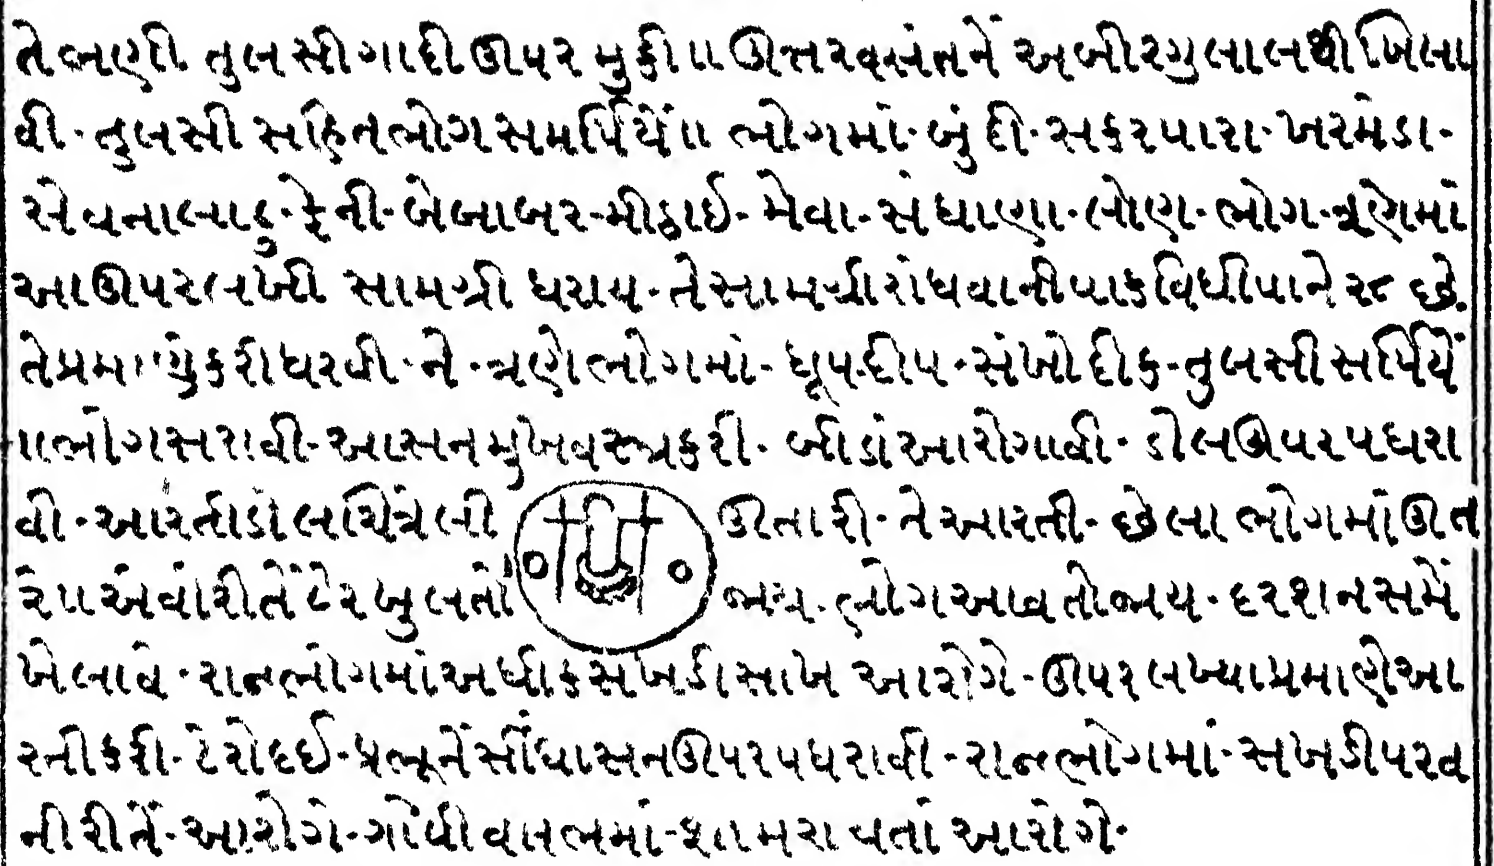 તે બણી તુલસી ગાદી ઊપર મુકી॥ ઊત્તર વસંતનેં અબીર ગુલાલથી ખિલા
વી· તુલસી સહિત ભોગ સમર્પિયેં॥ ભોગમાં· બુંદી· સકરપારા· ખરમંડા·
સેવના લાડુ· ફેની· બેબાબર· મીઠાઈ· મેવા· સંધાણા· લોણ· ભોગ ત્રણેમાં
આ ઊપર લખી સામગ્રી ધરાય· તે સામગ્રી રાંધવાની પાકવિધી પાને ૨૮ છે.
તે પ્રમાણે કરી ધરવી· ને· ત્રણે ભોગમાં· ધૂપ દીપ· સંખોદીક· તુલસી સર્પિયેં
॥ ભોગ સરાવી· આસન મુખવસ્ત્ર કરી· બીડાં આરોગાવી· ડોલ ઊપર પધરા
વી· આરતી ડોલ ચિત્રેલી ઊતારી· તે આરતી· છેલા ભોગમાં ઊત
રે॥ એવી રીતેં ટેર ખુલતો જાય· ભોગ આવતો જાય· દરશન સમેં
ખેલાવે· રાજભોગમાં અધીક સખડી સાખ આરોગે· ઊપર લખ્યા પ્રમાણે આ
રતી કરી· ટેરો દઈ· પ્રભૂનેં સીંઘાસન ઊપર પધરાવી· રાજભોગમાં· સખડી પરવ
ની રીતેં· આરોગે· ગોપી વલભમાં· આરોગે·